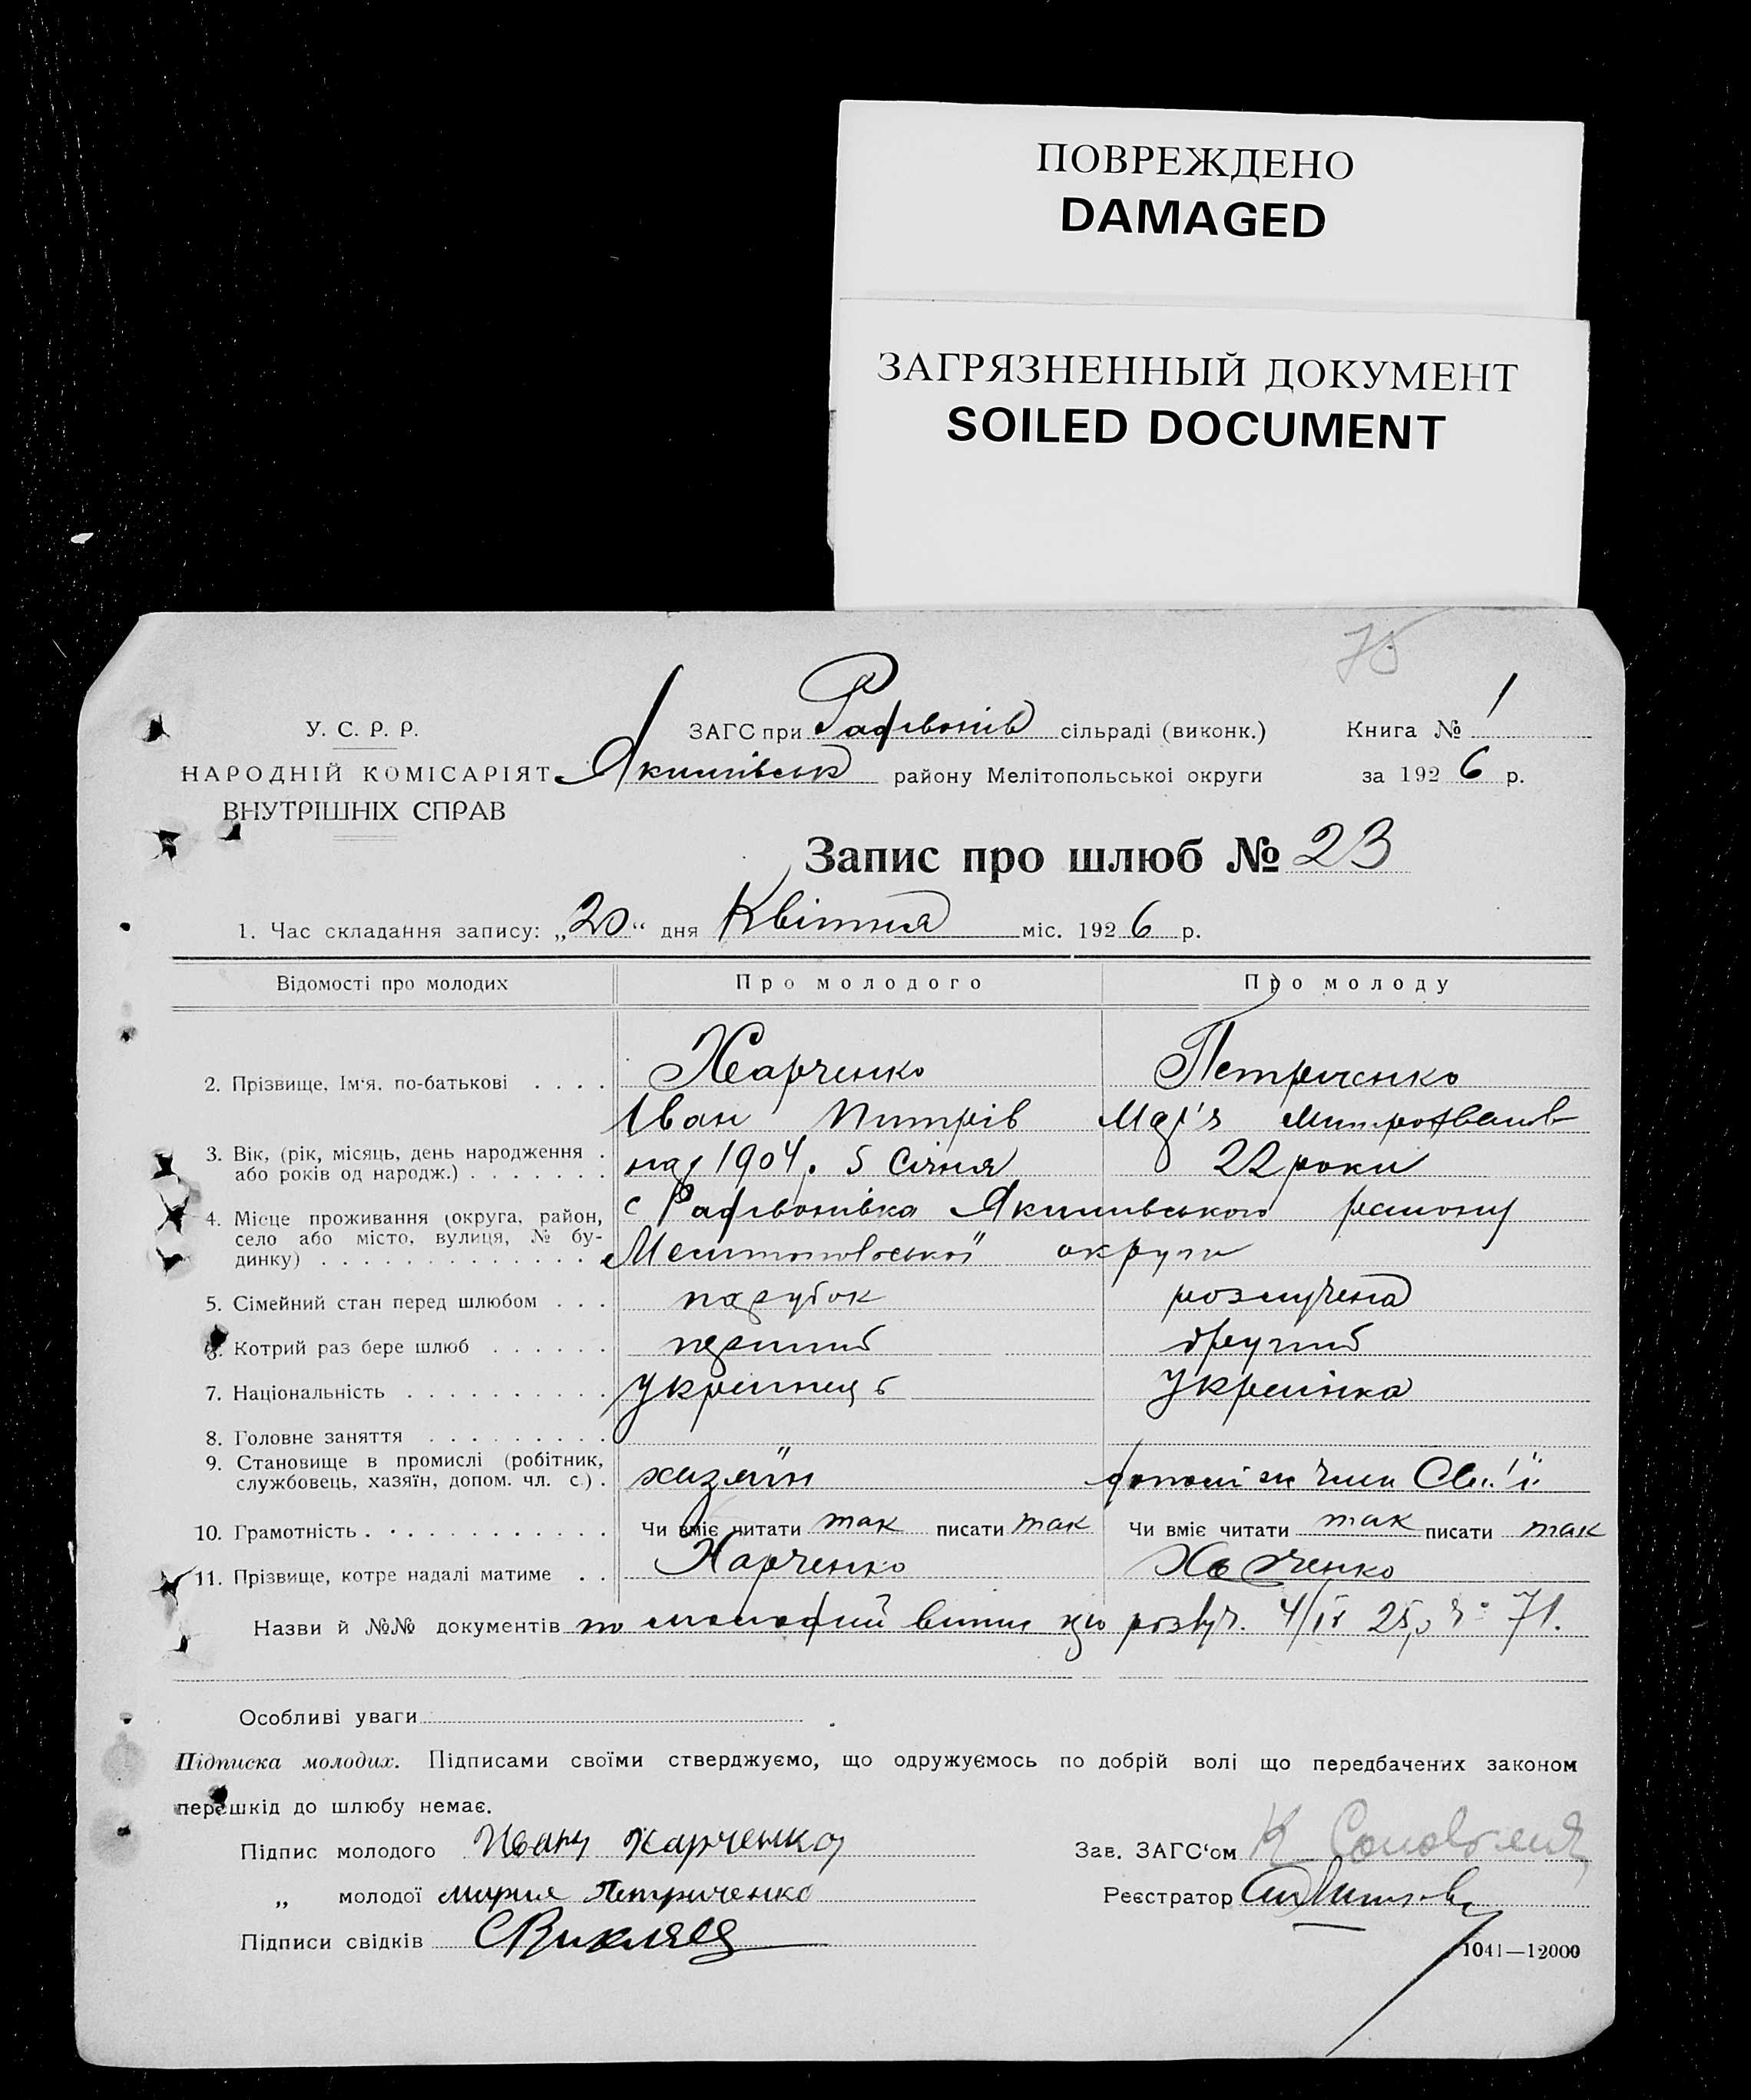 ПОВРЕЖДЕНО
DAMAGED
ЗАГРЯЗНЕННЫЙ ДОКУМЕНТ
SOILED DOCUMENT
75
У. С. Р. Р.
НАРОДНІЙ КОМІСАРІЯТ
ВНУТРІШНІХ СПРАВ
ЗАГС при сільраді (виконк.) Книга № 1
Якимівськ району Мелітопольської округи за 1926 р.
Запис про шлюб № 23
1. Час складання запису: „20“ дня Квітня міс. 1926 р.
Відомості про молодих Про молодого Про молоду
2. Прізвище, Ім'я, по-батькові Харченко Петриченко
Іван Митрів Мар'я
3. Вік, (рік, місяць, день народження або років од народж.) 1904. 5 Січня 22 роки
4. Місце проживання (округа, район, село або місто, вулиця, № будинку) с Якимівського району
Мелітопольської округи
5. Сімейний стан перед шлюбом парубок розлучена
6. Котрий раз бере шлюб перший другий
7. Національність українець Українка
8. Головне заняття
9. Становище в промислі (робітник, службовець, хазяїн, допом. чл. с.) хазяїн
10. Грамотність Чи вміє читати так писати так Чи вміє читати так писати так
11. Прізвище, котре надалі матиме Харченко Харченко
Назви й №№ документів 71.
Особливі уваги
Підписка молодих. Підписами своїми стверджуємо, що одружуємось по добрій волі що передбачених законом
перешкід до шлюбу немає.
Підпис молодого Иван Харченко Зав. ЗАГС'ом К
„ молодої Мария Петриченко Реєстратор
Підписи свідків
1041—12000